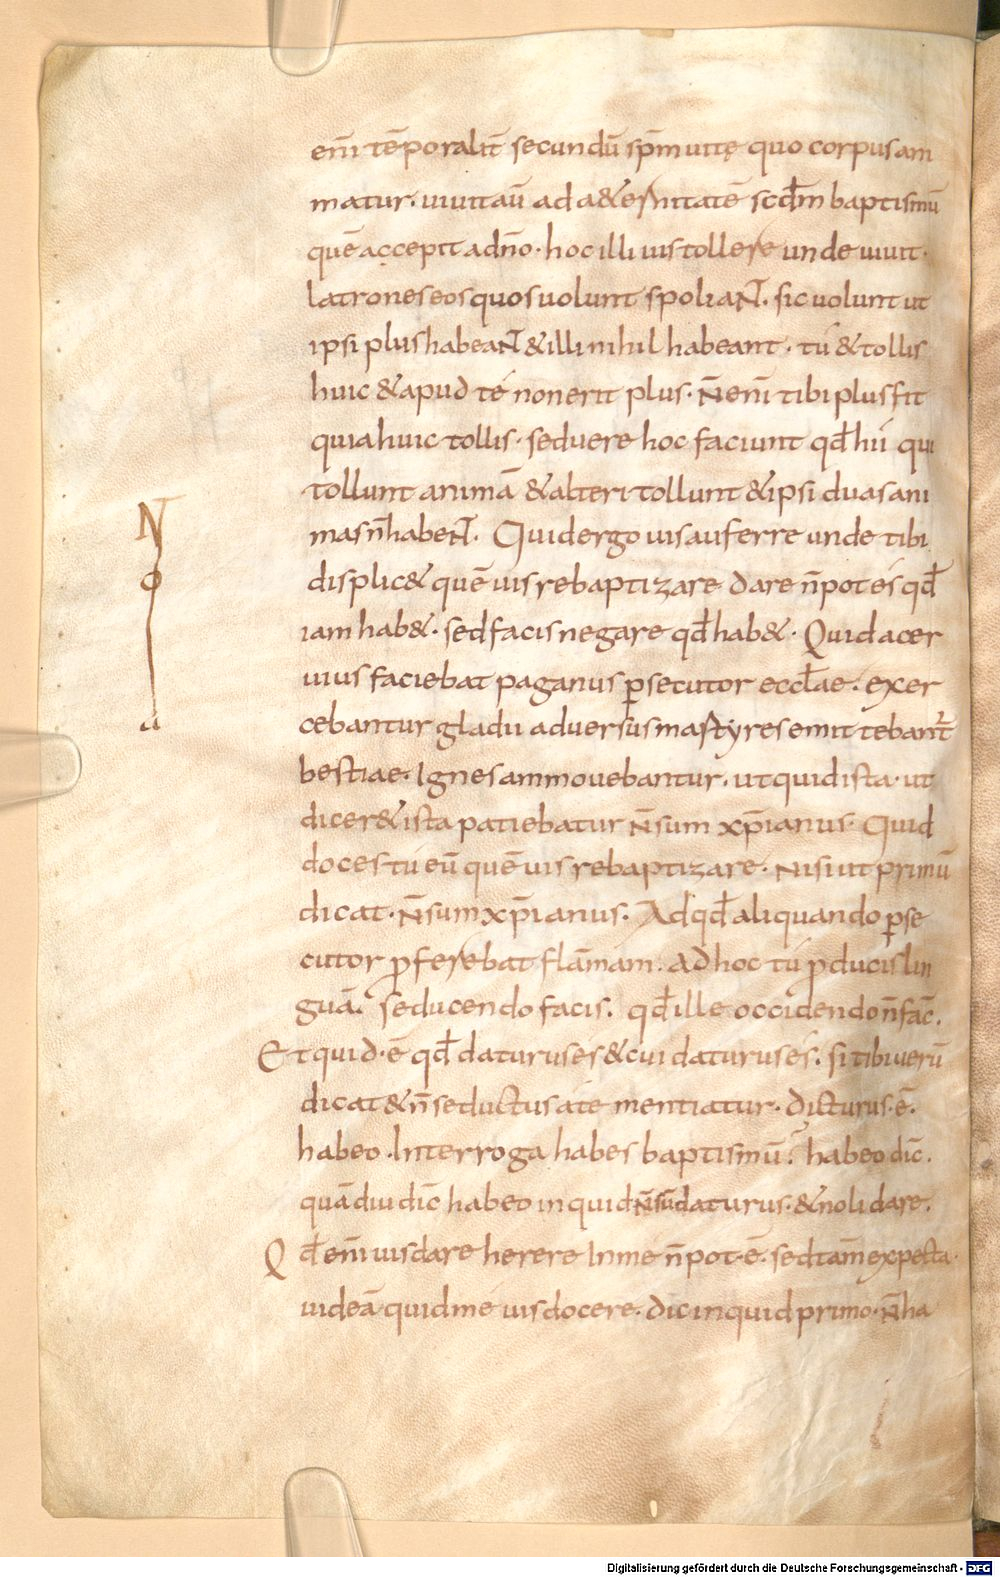 eni̅ te̅poralit̅ secundu̅ sp̅m uitę quo corpus ani
matur. uiuit au̅ ad a&ernitate̅ scdm̅ baptismu̅
que̅ accepit a dn̅o. hoc illi uis tollere unde uiuit.
latrones eos quos uolunt spoliant. sic uolunt ut
ipsi plus habeant & illi nihil habeant. tú & tollis
huic & apud té non erit plus. N̅ eni̅ tibi plus fit
quia huic tollis. sed uere hoc faciunt qd̅ hii qui
tollunt anima̅ & alteri tollunt & ipsi duas ani
mas n̅ habent. Quid ergo uis auferre unde tibi
displic& que̅ uis rebaptizare dare n̅ potes qd̅
iam hab&. sed facis negare qd̅ hab&. Quid acer
uius faciebat paganus p̱secutor eccl̅ae. exer
cebantur gladii adversus martyres emittebant̅
bestiae. Ignes ammouebantur. ut quid ista. ut
dicer& ista patiebatur n̅ sum xp̅ianus. Quid
doces tú eu̅ que̅ uis rebaptizare. Nisi ut primu̅
dicat. n̅ sum xp̅ianus. Ad qd̅ aliquando p̱se
cutor p̱ferebat fla̅mam. ad hoc tú p̱ducis lin
gua̅. seducendo facis. qd̅ ille occidendo n̅ fac̅.
Et quid. e̅ qd̅ daturus es & cui daturus és. si tibi ueru̅
dicat & n̅ seductus a te mentiatur. dicturus. e̅.
habeo. Interroga habes baptismu̅? habeo dic̅.
qua̅diu dic̅ habeo inquid n̅ su̅ daturus. & noli dare.
Qd̅ eni̅ uis dare herere In me n̅ pot. e̅. sed tam̅ expecta.
uidea̅ quid me uis docere. dic inquid primo. n̅ ha
No
a
Digitalisierung gefördert durch die Deutsche Forschungsgemeinschaft - DFG